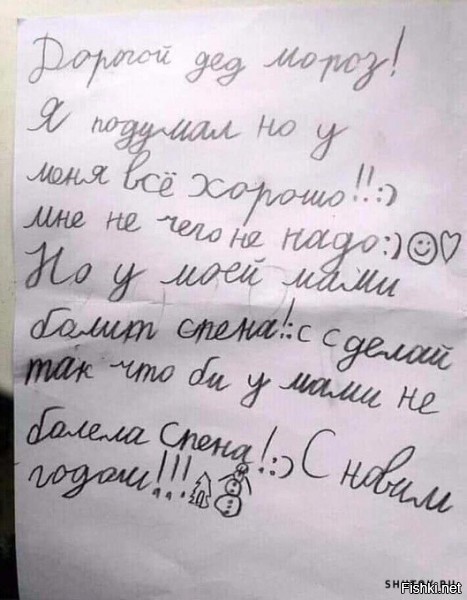 Дорогой дед мороз!
Я подумал но у
меня всё хорошо!!:)
мне не чего не надо:)☺♡
Но у моей мами
болит спена!:с сделай
так что би у мами не
болела спена!:) С новим
годом!!!
SHUTOK.RU
Fishki.net